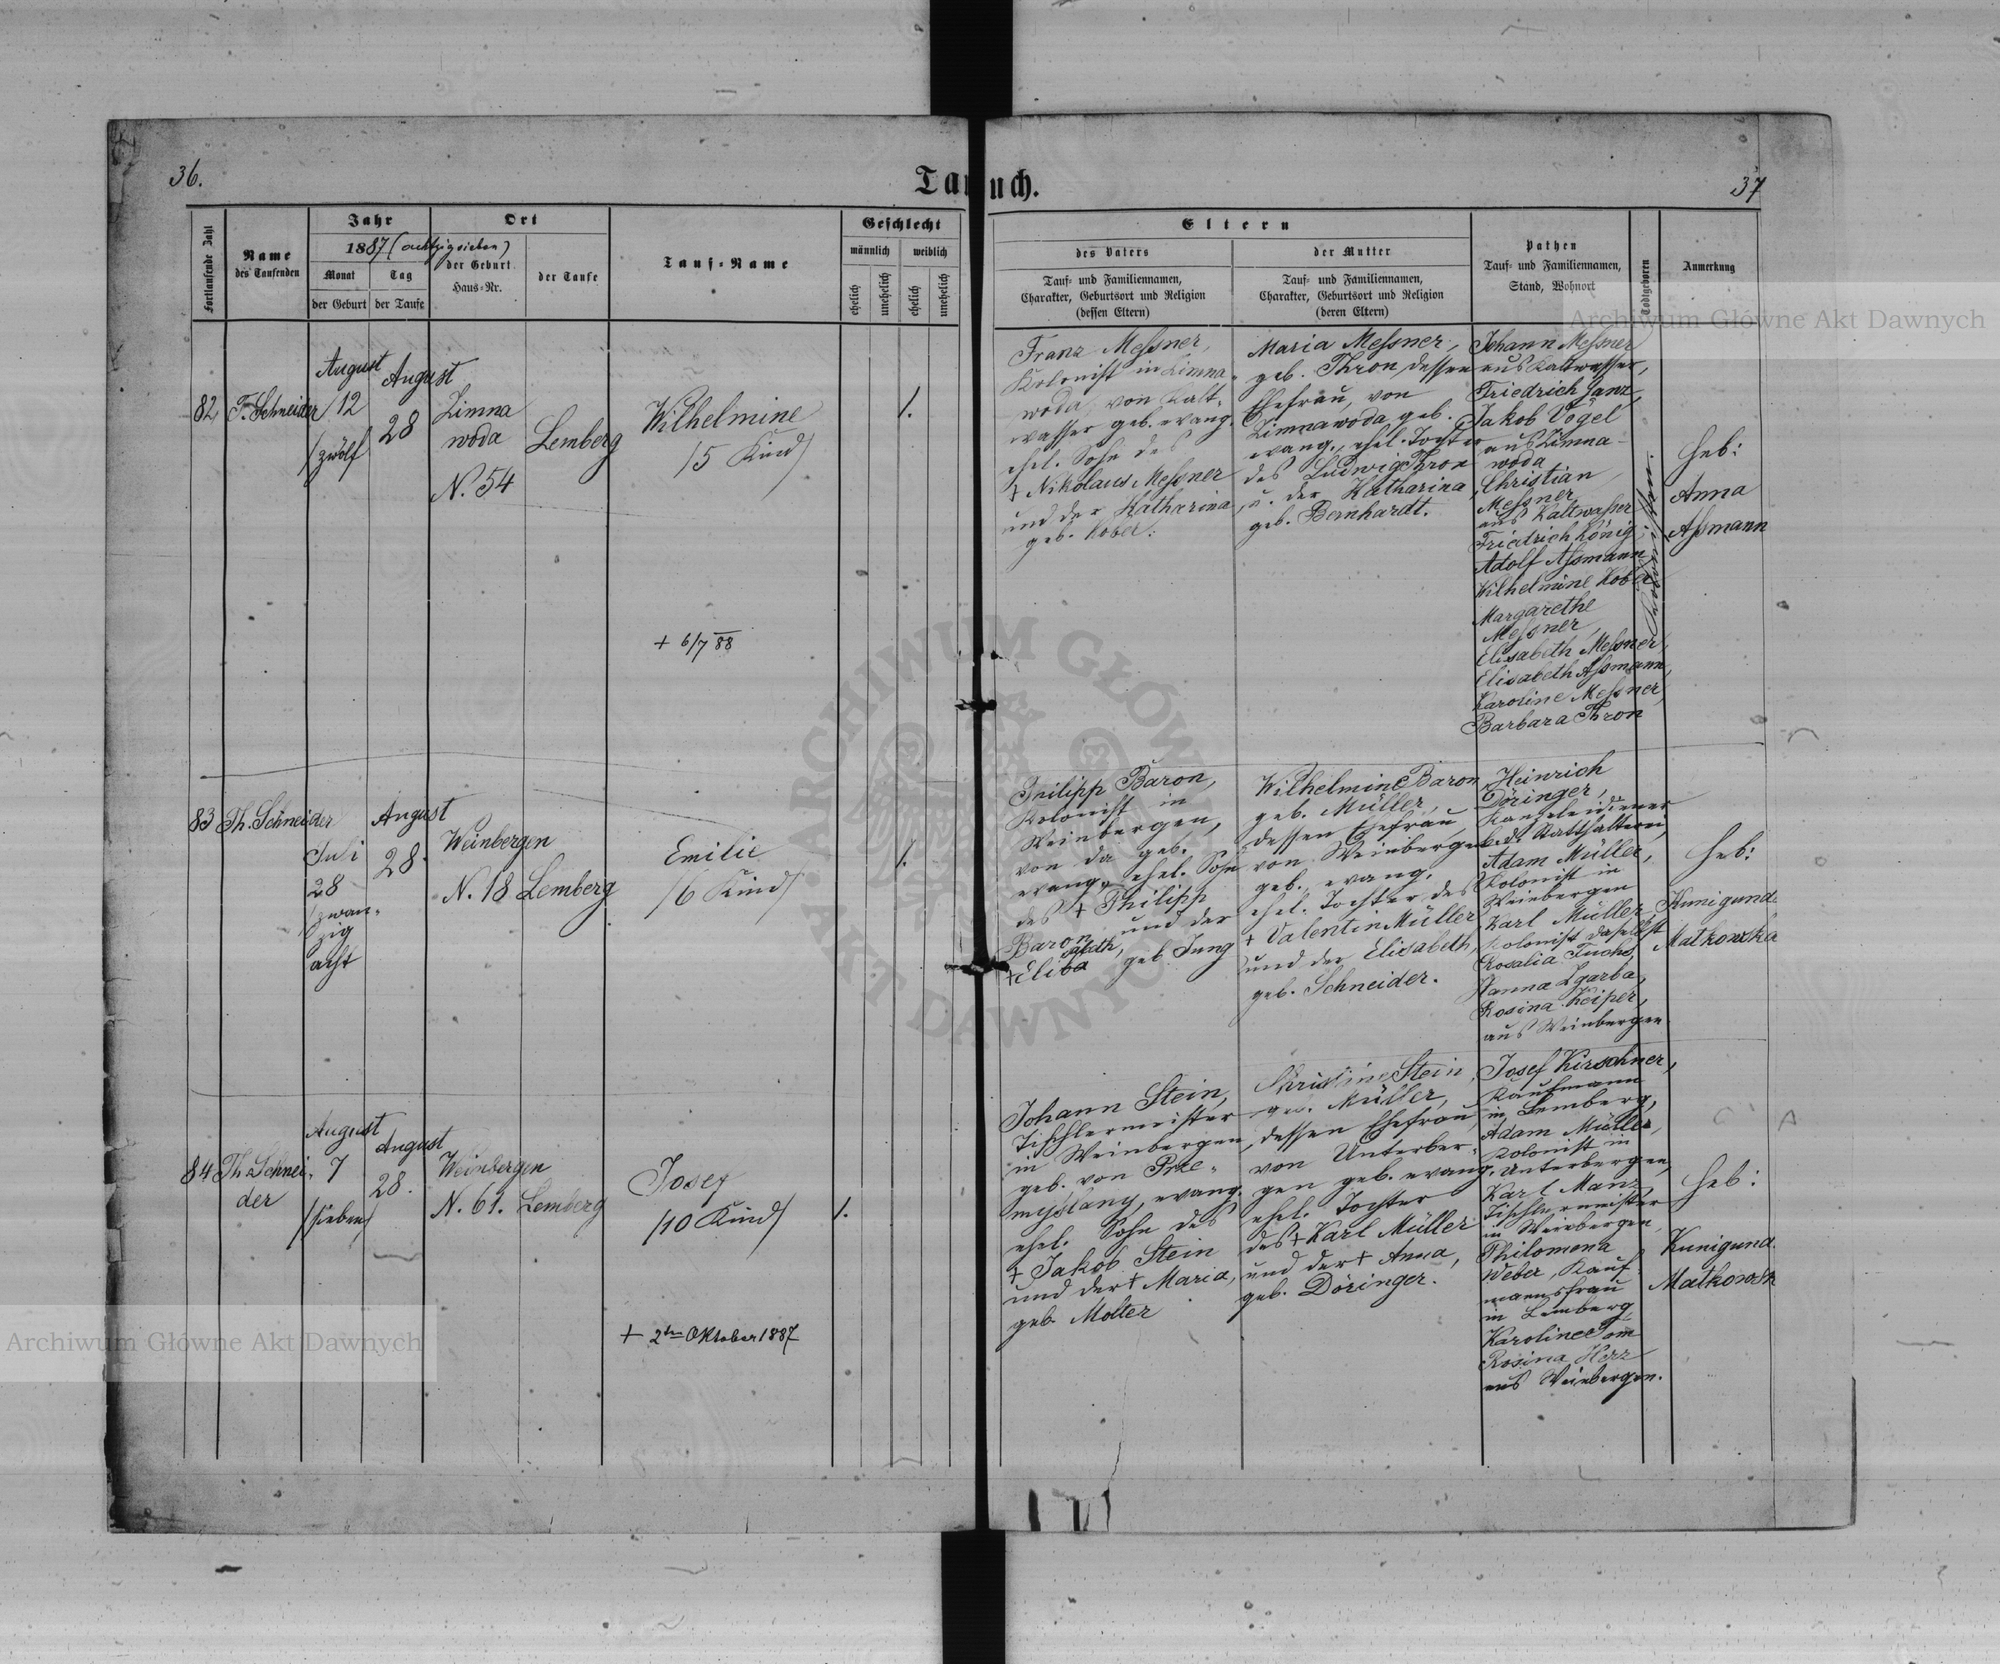 36.
Ta
uch.
37
Fortlaufende Zahl
Name
des Taufenden
Jahr
1887 (achtzigsieben)
Monat
Tag
der Geburt
der Taufe
Ort
der Geburt
Haus-Nr.
der Taufe
Tauf-Name
Geschlecht
männlich
weiblich
ehelich
unehelich
ehelich
unehelich
Eltern
des Vaters
Tauf- und Familiennamen,
Charakter, Geburtsort und Religion
(dessen Eltern)
der Mutter
Tauf- und Familiennamen,
Charakter, Geburtsort und Religion
(deren Eltern)
Pathen
Tauf- und Familiennamen,
Stand, Wohnort
Todtgeboren
Anmerkung
82
T. Schneider
August
12
/zwölf
August
28
Zimna
woda
N. 54
Lemberg
Wilhelmine
/5 Kind/
+ 6/7 88
1.
Franz Messner,
Kolonist in Zimna
woda, von Kalt-
wasser geb. evang.
ehel. Sohn des
+ Nikolaus Messner
und der Katharina
geb. Kober.
Maria Messner,
geb. Thron, dessen
Ehefrau, von
Zimnawoda geb.
evang., ehel. Tochter
des Ludwig Thron
u. der Katharina,
geb. Bernhardt.
Johann Messner
aus Kaltwasser,
Friedrich Janz,
Jakob Vogel
aus Zimna-
woda
Christian
Messner,
aus Kaltwasser
Friedrich König,
Adolf Assmann
Wilhelmine Kober
Margarethe
Messner,
Elisabeth Messner,
Elisabeth Assmann,
Karoline Messner,
Barbara Thron
Heb:
Anna
Assmann
83
Th. Schneider
Juli
28
/zwan-
zig
acht
August
28.
Weinbergen
N. 18
Lemberg
Emilie
/6 Kind/
1.
Philipp Baron,
Kolonist in
Weinbergen,
von da geb.
evang., ehel. Sohn
des + Philipp
Baron und der
+ Elisabeth, geb Jung
Wilhelmine Baron
geb. Müller,
dessen Ehefrau
von Weinbergen
geb., evang.
ehel. Tochter des
+ Valentin Müller
und der Elisabeth,
geb. Schneider.
Heinrich
Döringer,
Kanzleidiener
b. d. Statthalterei,
Adam Müller,
Kolonist in
Weinbergen
Karl Müller,
Kolonist daselbst
Rosalia Fuchs,
Hanna Zgarba,
Rosina Keiper,
aus Weinbergen
Heb:
Kunigunde
Matkowska
84
Th. Schnei-
der
August
7
/sieben/
August
28.
Weinbergen
N. 61.
Lemberg
Josef
/10 Kind/
+ 2ten Oktober 1887
1.
Johann Stein,
Tischlermeister
in Weinbergen,
geb. von Prze-
myslany, evang.
ehel. Sohn des
+ Jakob Stein
und der + Maria,
geb. Molter
Christine Stein,
geb. Müller,
dessen Ehefrau,
von Unterber-
gen geb. evang.
ehel. Tochter
des + Karl Müller
und der + Anna,
geb. Döringer.
Josef Kirschner,
Kaufmann
in Lemberg,
Adam Müller,
Kolonist in
Unterbergen,
Karl Manz,
Tischlermeister
in Weinbergen,
Philomena
Weber, Kauf-
mannsfrau
in Lemberg,
Karoline
Rosina Herz
aus Weinbergen.
Heb:
Kunigund.
Matkowsk
Archiwum Główne Akt Dawnych
Archiwum Główne Akt Dawnych
ARCHIWUM GŁÓWNE
AKT DAWNYCH